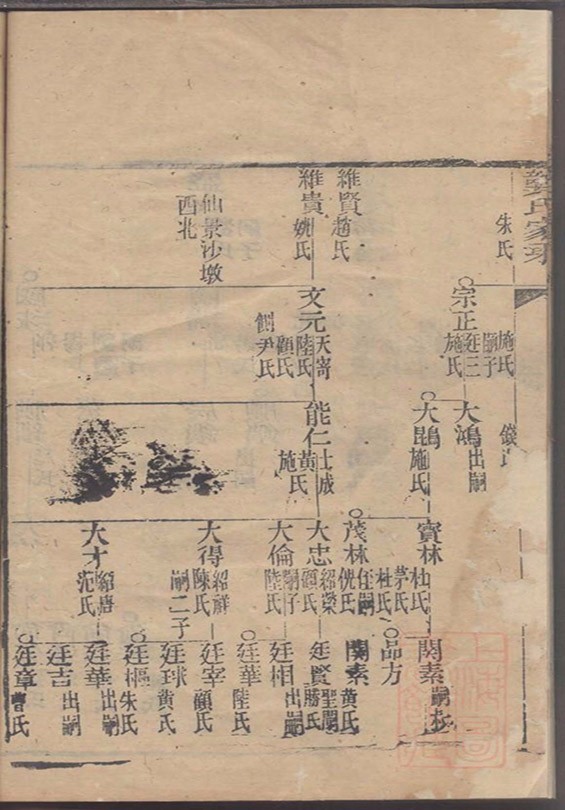 氏家
朱氏
維賢
趙氏
維貴
姚氏
仙景沙墩
西北
宗正
施氏
嗣子
廷三
施氏
文元
天寄
陸氏
顧氏
尹氏
大鴻
出嗣
大鵾
施氏
能仁
士成
黃氏
施氏
寳林
杜氏
茅氏
杜氏
茂林
大忠
紹榮
顧氏
大倫
嗣子
陸氏
大得
紹祥
陳氏
嗣二子
大才
紹唐
范氏
関素
品方
関素
黃氏
廷賢
聖闇
勝氏
廷相
出嗣
廷華
陸氏
廷宰
顧氏
廷球
黃氏
廷樞
朱氏
廷華
出嗣
廷吉
出嗣
廷章
曹氏